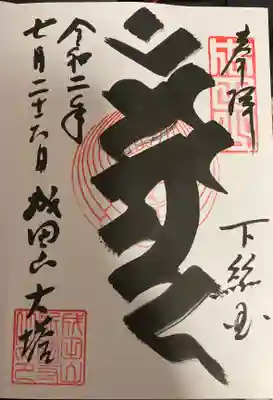 奉拝
下総国
令和二年
七月二十六日 成田山 大塔